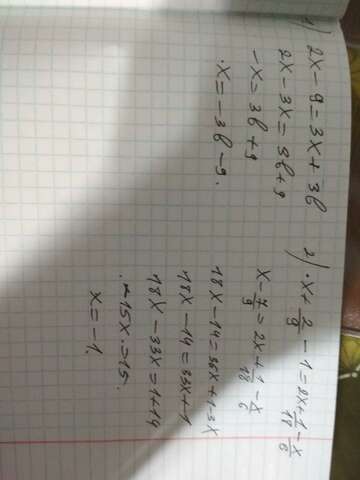 1) 2x - 9 = 3x + 3b
2x - 3x = 3b + 9
-x = 3b + 9
x = -3b - 9.
2) x + 2/9 - 1 = 2x + 1/18 - x/6
x - 7/9 = 2x + 1/18 - x/6
18x - 14 = 36x + 1 - 3x
18x - 14 = 33x + 1
18x - 33x = 1 + 14
-15x = 15.
x = -1.